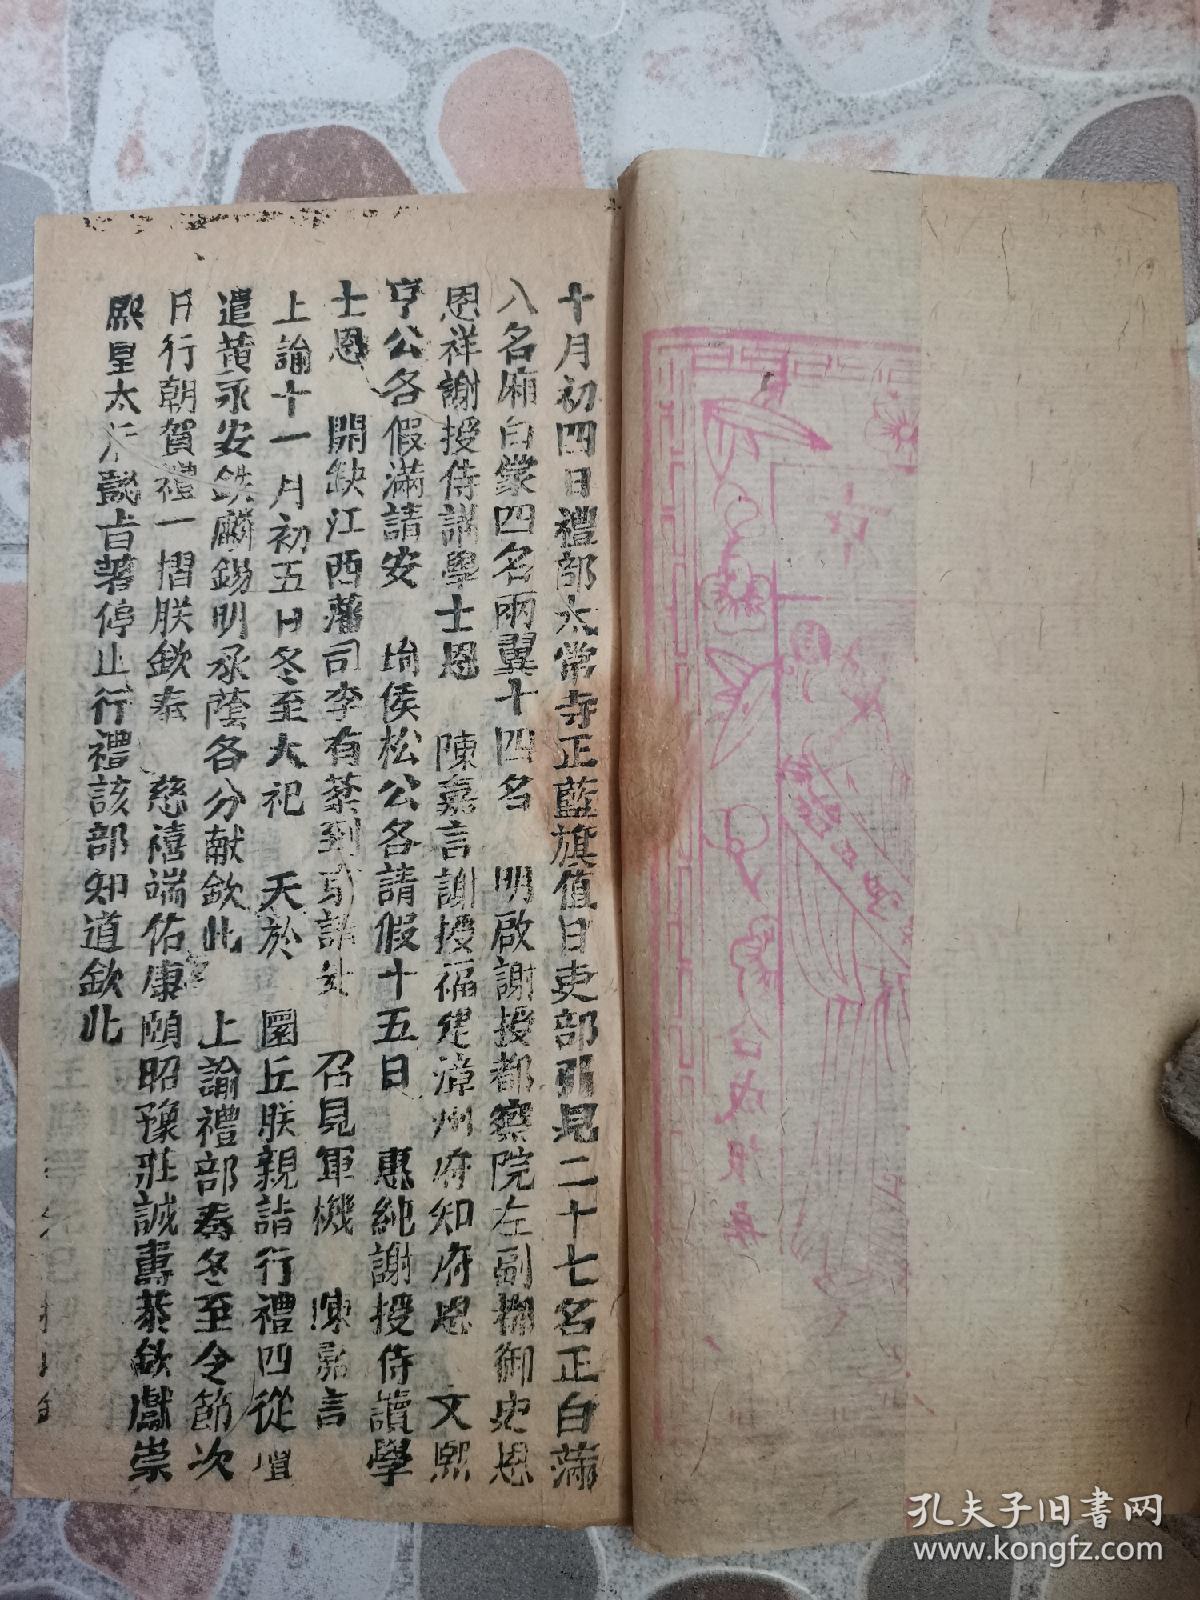 十月初四日禮部太常寺正藍旗值日吏部引見二十七名正白滿
八名廂白蒙四名兩翼十四名　明啟謝授都察院左副都御史恩
恩祥謝授侍講學士恩　陳嘉言謝授福建漳州府知府恩　文熙
亨公各假滿請安　侯松公各請假十五日　惠純謝授侍讀學
士恩　開缺江西藩司李有棻到京請安　召見軍機　陳嘉言
上諭十一月初五日冬至大祀　天於　圜丘朕親詣行禮四從壇
遣黃永安鉄麟錫明承蔭各分献欽此　上諭禮部奏冬至令節次
日行朝賀禮一摺朕欽奉　慈禧端佑康頤昭豫莊誠壽恭欽獻崇
熙皇太后懿旨著停止行禮該部知道欽此
合成報房
孔夫子旧書网
www.kongfz.com